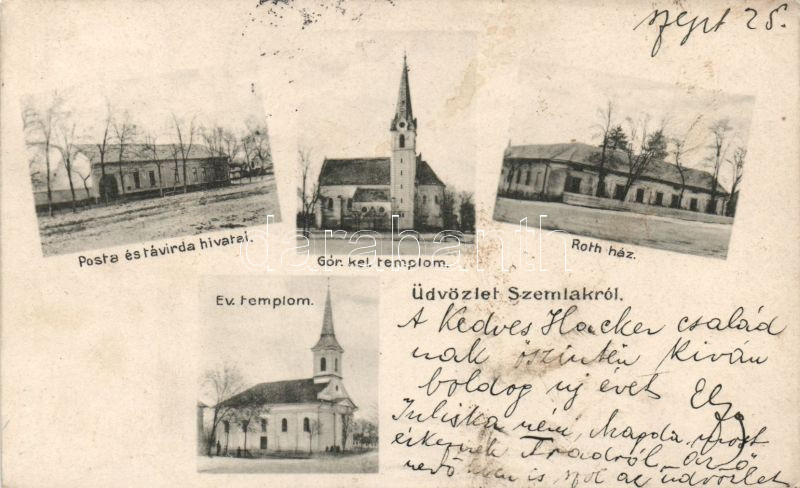 szept 25.
Posta és távirda hivatal.
Gör. kel. templom.
Roth ház.
darabanth
Ev. templom.
Üdvözlet Szemlakról.
A Kedves Hacker család
nak őszintén kiván
boldog uj évet
Juliska néni, Magda most
érkeznek Aradról az ő
is az üdvözlet